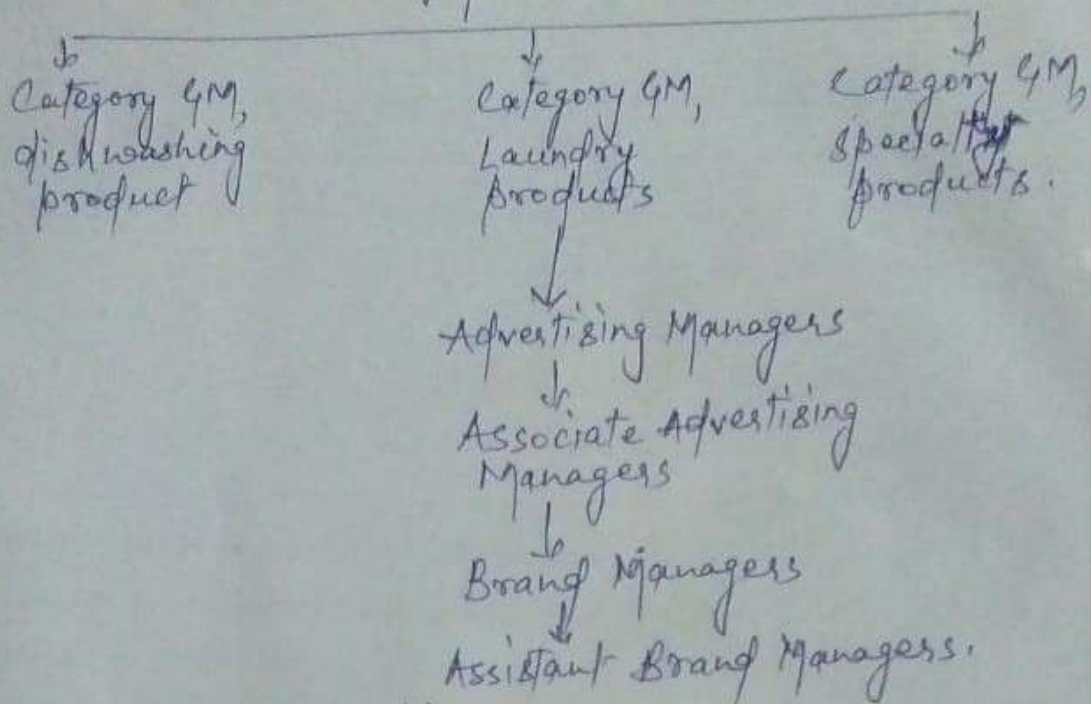 Category GM,
dishwashing
product
Category GM,
Laundry
products
Category GM,
specialty
products.
Advertising Managers
Associate Advertising
Managers
Brand Managers
Assistant Brand Managers.